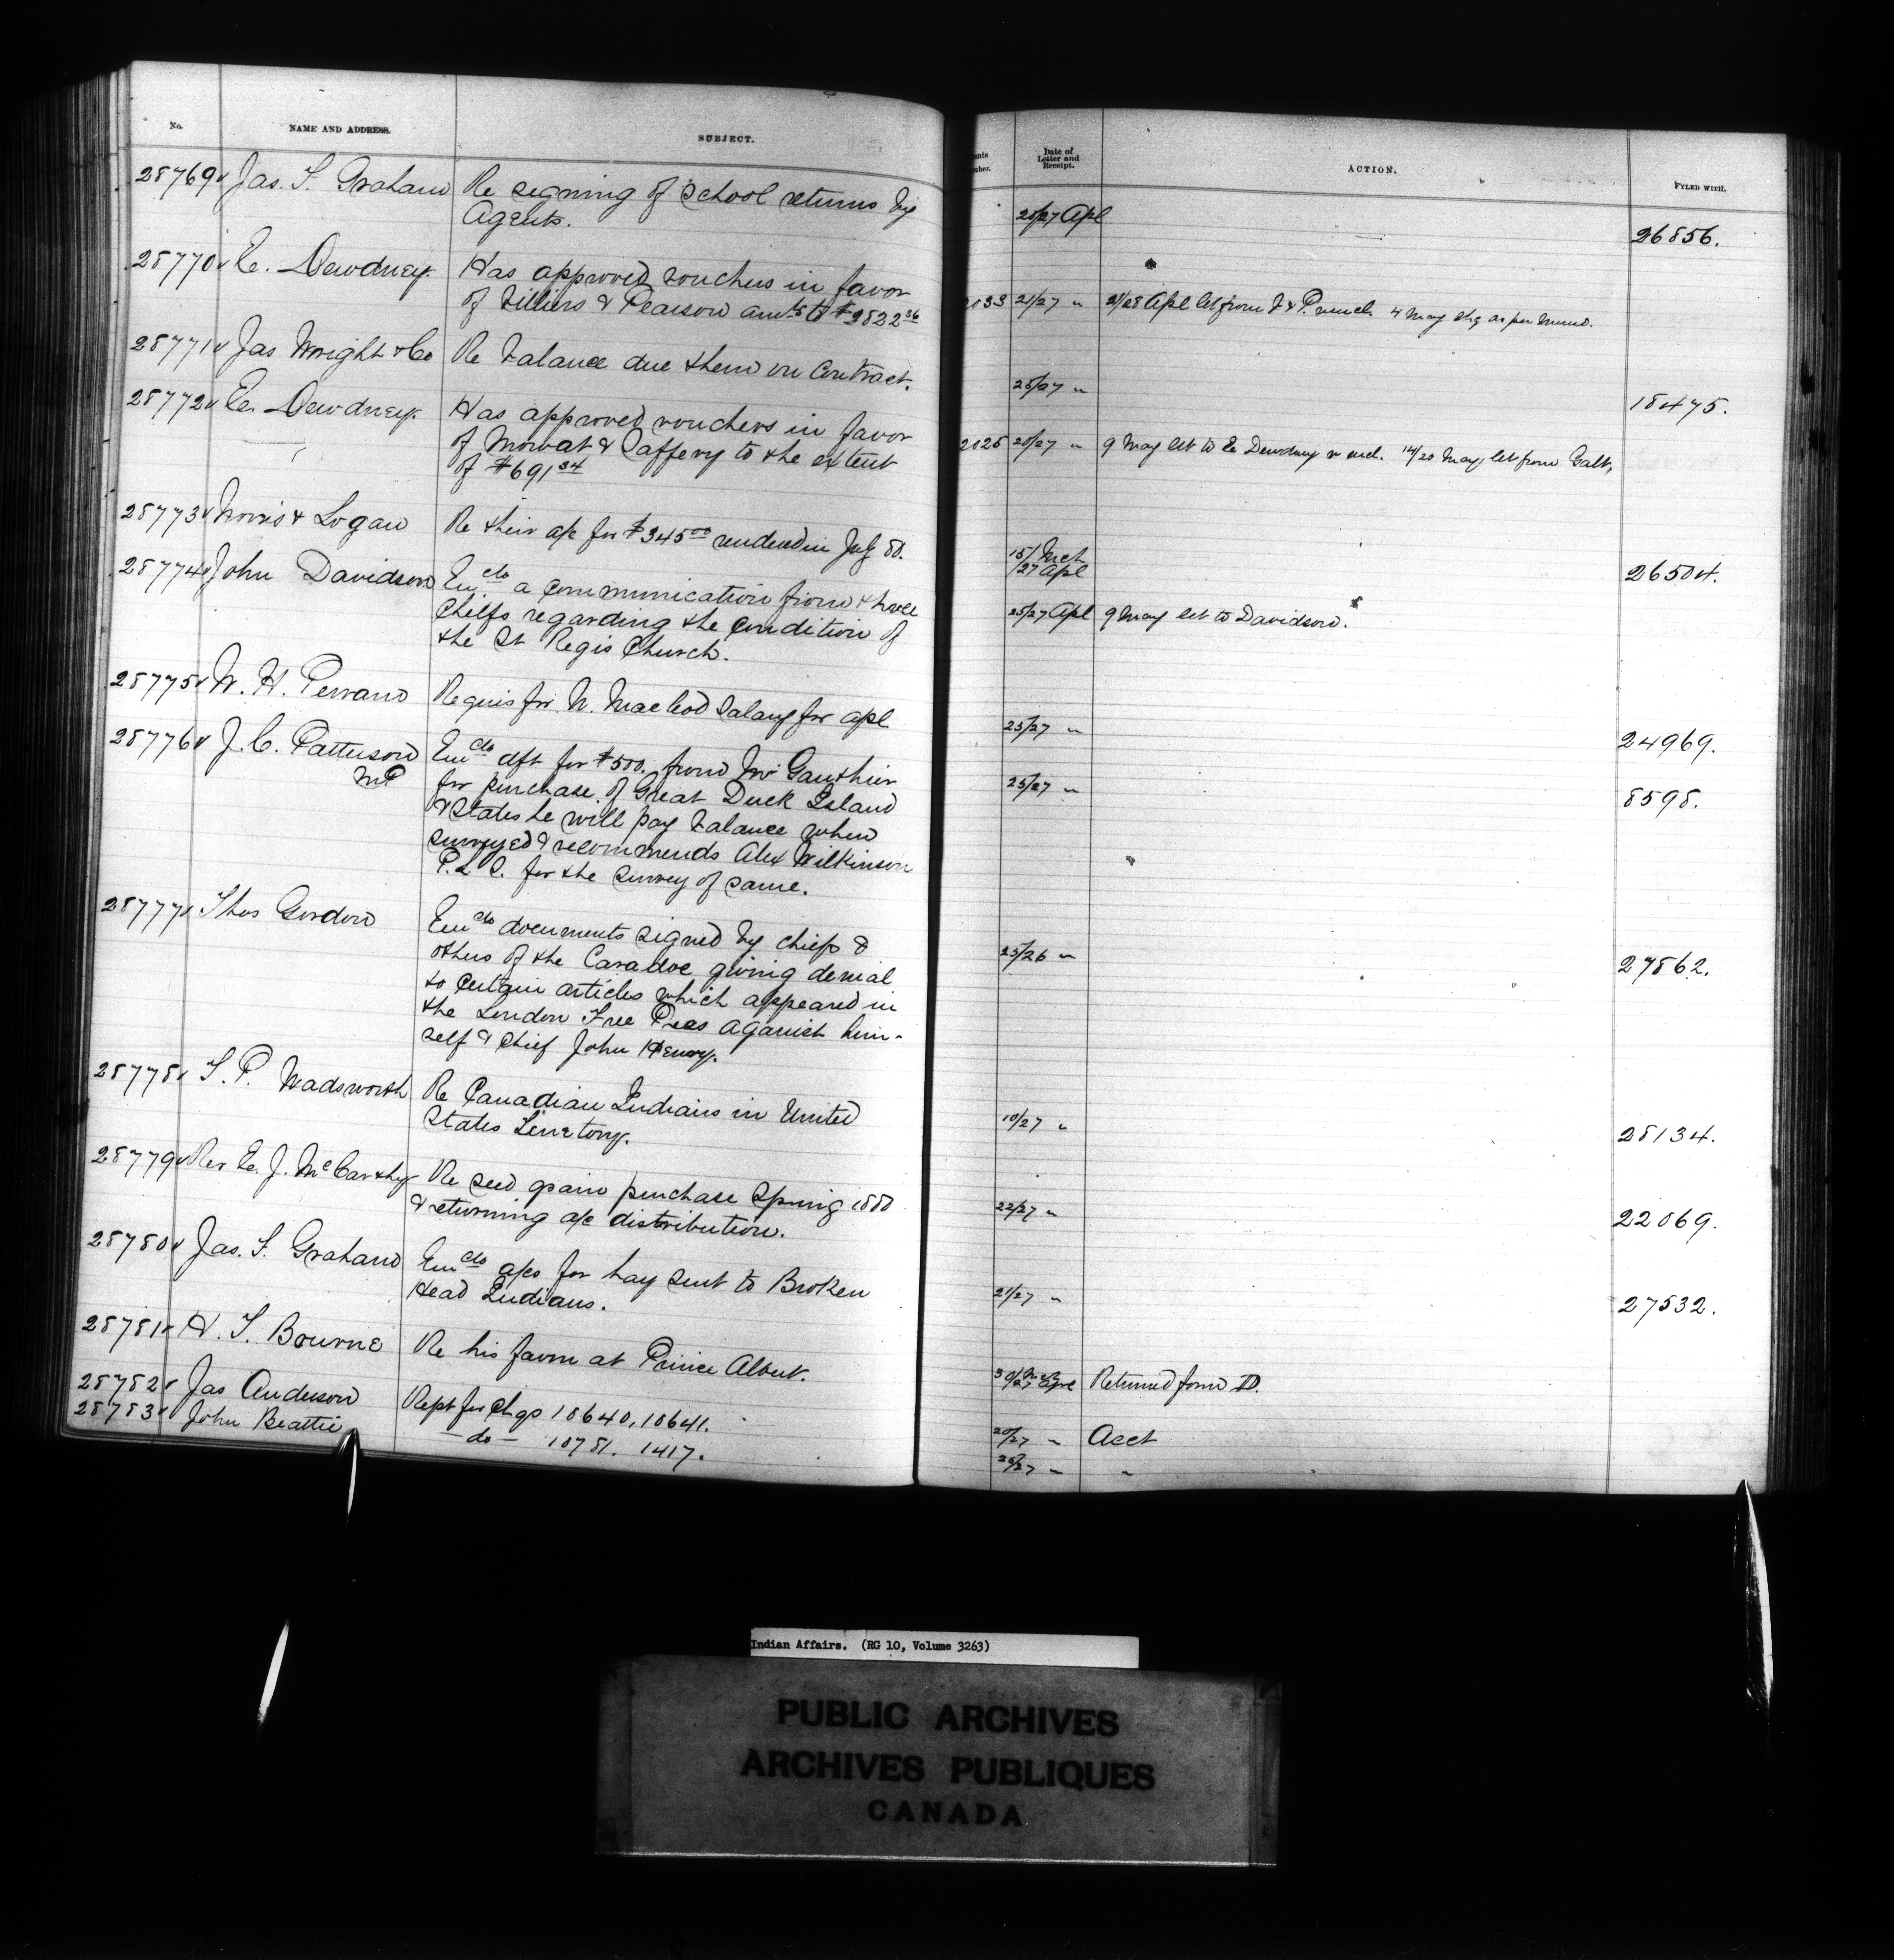 No. NAME AND ADDRESS. SUBJECT. Date of Letter and Receipt. ACTION. FYLED WITH.
28769 Jas. F. Graham Re signing of School returns by 26/27 Apl 26856.
Agents.
28770 E. Dewdney Has approved vouchers in favor 21/27 "
of & Pearson amtg to $2822 36
28771 Jas Wright & Co Re balance due them on Contract. 25/27 " 18475.
28772 E. Dewdney. Has approved vouchers in favor 2025 20/27 " 9 May let to E Dewdney 14/20 May, let from Galt,
of Mowat & Saffery to the extent
of $691 34
28773 Norris & Logan Re their a/c for $345 00 rendered in July 80. 15/ Mch 26504.
/27 Apl
28774 John Davidson Enclo a communication from three 25/27 Apl 9 May let to Davidson.
Chiefs regarding the Condition of
the St Regis Church.
28775 W. H. Perram Requis for N. Macleod Salary for apl 25/27 " 24969.
28776 J. C. Patterson Enclo dft for $500. from Mr Gauthier 25/27 " 8598.
MP for purchase of Great Duck Island
& States he will pay balance when
surveyed & recommends Alex Wilkinson
P.L.S. for the survey of same.
28777 Thos Gordon Enclo documents signed by chiefs & 25/26 " 27862.
others of the Caradoc giving denial
to certain articles which appeared in
the London Free Press against him-
self & Chief John Henry.
28778 T. P. Wadsworth Re Canadian Indians in United 10/27 " 28134.
States Territory.
28779 Rev E. J. McCarthy Re seed grain purchase Spring 1880 22/27 " 22069.
& returning a/c distribution.
28780 Jas. F. Graham Enclo a/cs for hay sent to Broken 21/27 " 27532.
Head Indians.
28781 H. T. Bourne Re his farm at Prince Albert. 30/ Mch Returned form D.
/27 Apl
28782 Jas Anderson Rept for Chqs 10640, 10641. 20/27 " Acct
28783 John Beattie - do - 10781. 1417. 26/27 " "
Indian Affairs. (RG 10, Volume 3263)
PUBLIC ARCHIVES
ARCHIVES PUBLIQUES
CANADA